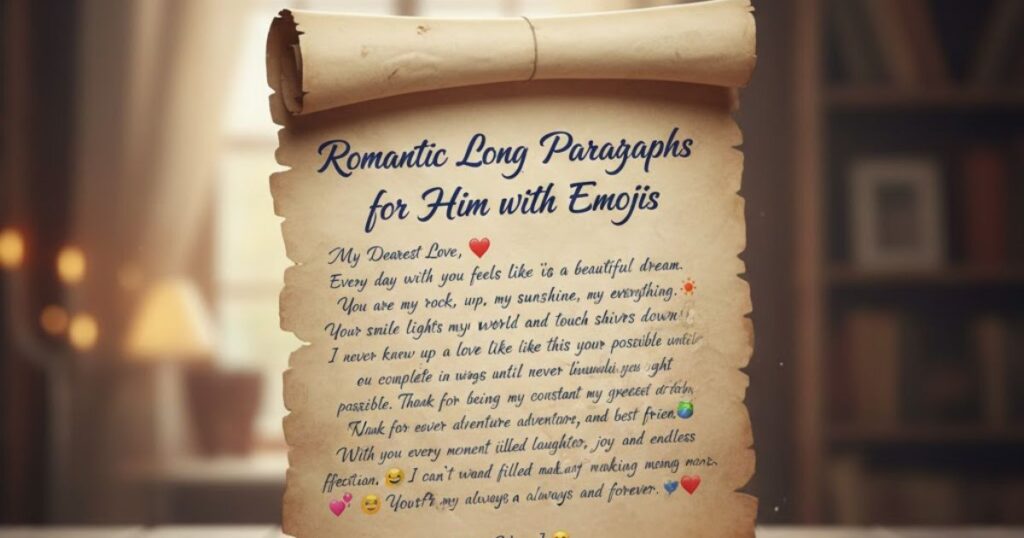 Romantic Long Paragaphs
for Him with Emojis
My Dearest Love, ❤️
Every day with you feels like is a beautiful dream.
You are my rock, up, my sunshine, my everything. ☀️
Your smile lights my world and touch shivs down
I never knew up a love like like this your possible
ou complete in wags until never ght
possible. Thank for being my constant my greeset
for ever adventure, and best frien. 🌍
With you every moment filled laughter, joy and endless
ffection. 😂 I can't wand filled making
💕 😊 my always a always and forever. 💙❤️